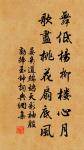 舞低楊柳樓心月
歌盡桃花扇底風
晏幾道鷓鴣天彩袖殷
勤捧玉鍾詞典網集